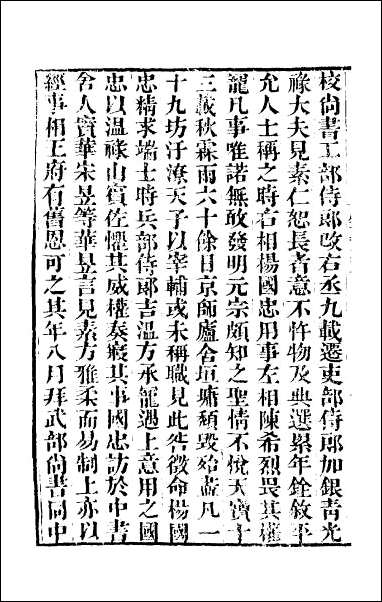 校尚書工部侍郎改右丞九載遷吏部侍郎加銀青光
祿大夫見素仁恕長者意不忤物及典選累年銓敘平
允人士稱之時右相楊國忠用事左相陳希烈畏其權
寵凡事唯諾無敢發明元宗頗知之聖情不悅天寶十
三載秋霖雨六十餘日京師廬舍垣墉頹毀殆盡凡一
十九坊汙潦天子以宰輔或未稱職見此咎徵命楊國
忠精求端士時兵部侍郎吉溫方承寵遇上意用之國
忠以溫祿山賓佐懼其威權奏寢其事國忠訪於中書
舍人竇華宋昱等華昱言見素方雅柔而易制上亦以
經事相王府有舊恩可之其年八月拜武部尚書同中